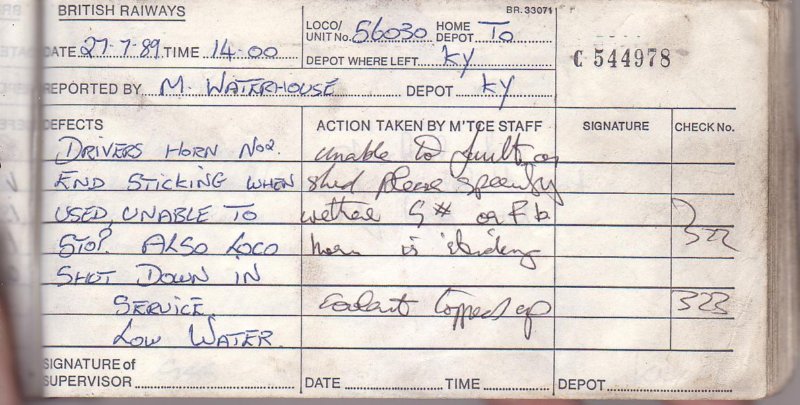 BRITISH RAIWAYS
BR. 33071
DATE 27-7-89 TIME 14-00
LOCO/ UNIT No. 56030 HOME DEPOT To
DEPOT WHERE LEFT KY
C 544978
REPORTED BY M. WATERHOUSE DEPOT KY
DEFECTS
ACTION TAKEN BY M'TCE STAFF
SIGNATURE
CHECK No.
DRIVERS HORN No2.
END STICKING WHEN
USED, UNABLE TO
STOP. ALSO LOCO
SHUT DOWN IN
SERVICE.
LOW WATER.
unable to fault on
shed please specify
wether G# or Fb
horn is sticking
322
coolant topped up
323
SIGNATURE of SUPERVISOR
DATE TIME
DEPOT